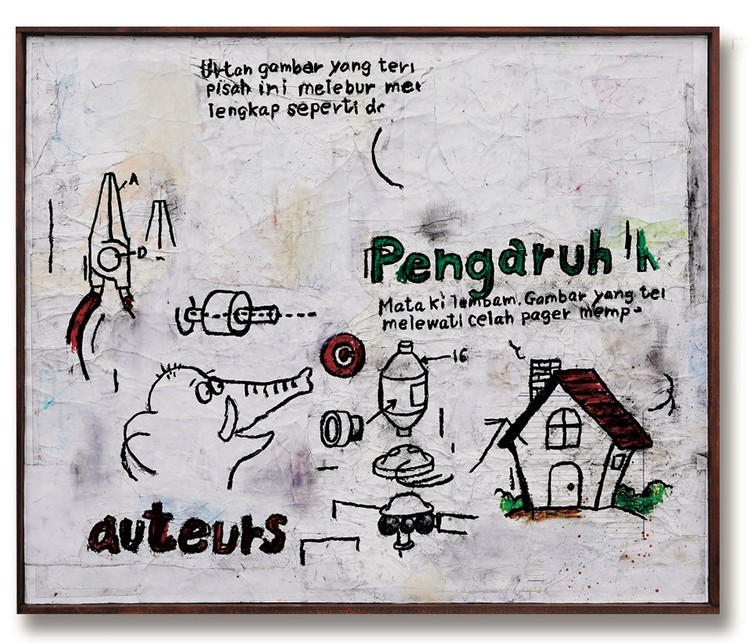 gambar yang
pisah ini melebur
lengkap seperti
A
D
Pengaruh
Mata ki lambam. Gambar yang
melewati celah pager memp
C
16
auteurs